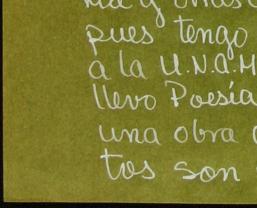 pues tengo
a la U.N.A.M
llevo Poesía
una obra
tos son